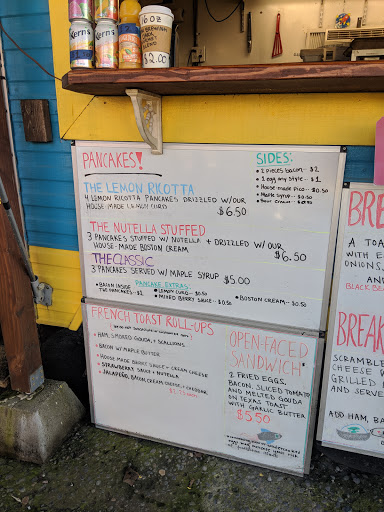 Kern's
Kern's
16oz
$2.00
PANCAKES!
THE LEMON RICOTTA
4 LEMON RICOTTA PANCAKES DRIZZLED W/OUR
HOUSE-MADE LEMON CURD
$6.50
THE NUTELLA STUFFED
3 PANCAKES STUFFED W/ NUTELLA + DRIZZLED W/ OUR
HOUSE-MADE BOSTON CREAM
$6.50
THE CLASSIC
3 PANCAKES SERVED W/ MAPLE SYRUP $5.00
BACON INSIDE
THE PANCAKES - $2
PANCAKE EXTRAS:
• LEMON CURD - $0.50
• MIXED BERRY SAUCE - $0.50
• BOSTON CREAM - $0.50
SIDES:
• 2 pieces bacon - $2
• 1 egg any style - $1
• House-made Pico - $0.50
• Maple syrup - $0.50
• Sour cream - $0.50
FRENCH TOAST ROLL-UPS
• HAM, SMOKED GOUDA, & SCALLIONS
• BACON W/ MAPLE BUTTER
• HOUSE MADE BERRY SAUCE + CREAM CHEESE
• STRAWBERRY SAUCE + NUTELLA
• JALAPEÑO, BACON, CREAM CHEESE, & CHEDDAR
OPEN-FACED
SANDWICH
2 FRIED EGGS,
BACON, SLICED TOMATO
AND MELTED GOUDA
ON TEXAS TOAST
WITH GARLIC BUTTER
$5.50
BRE
A TOA
WITH E
ONIONS,
AND
BLACK BE
BREAK
SCRAMBLE
CHEESE
GRILLED
AND SERVE
ADD HAM, BA